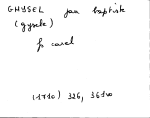 GHYSEL jan baptist
(gysele)
fs carel
(1710) 326, 361vo